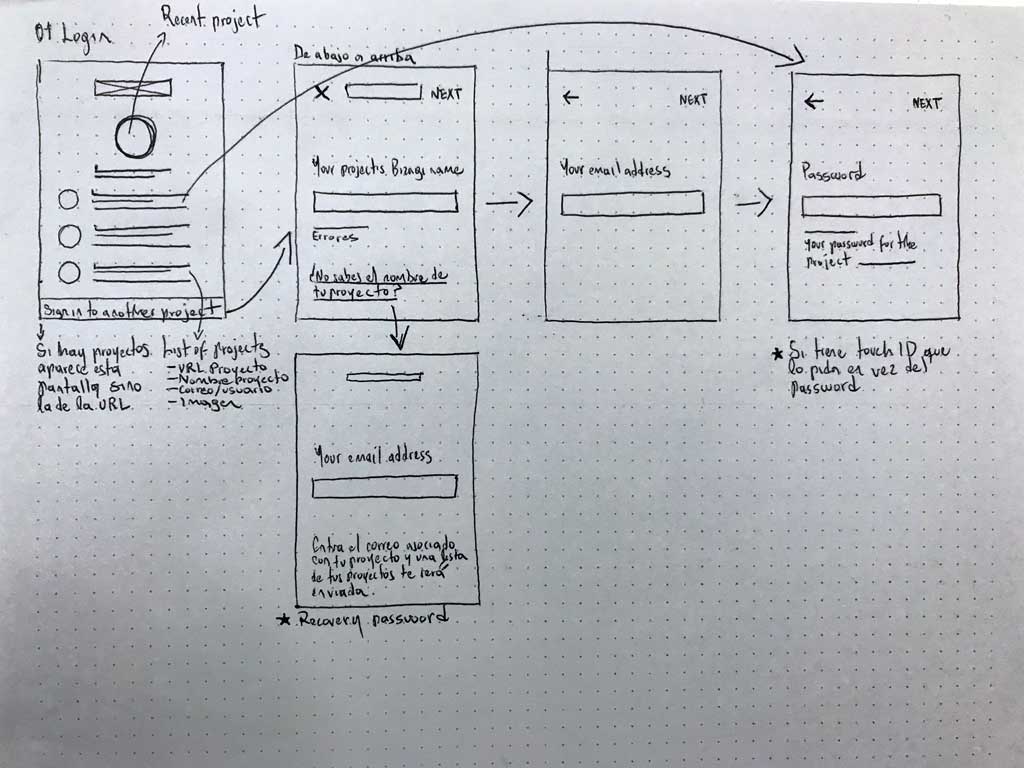 01 Login
Recent project
Sign in to another project
Si hay proyectos
aparece esta
pantalla sino
la de la URL
List of projects
- URL Proyecto
- Nombre proyecto
- Correo/usuario
- Imagen
De abajo a arriba
X NEXT
Your projects Bizagi name
Errores
¿No sabes el nombre de
tu proyecto?
Your email address
Entra el correo asociado
con tu proyecto y una lista
de tus proyectos te será
enviada.
★ Recovery password
← NEXT
Your email address
← NEXT
Password
Your password for the
project
★ Si tiene touch ID que
lo pida en vez del
Password